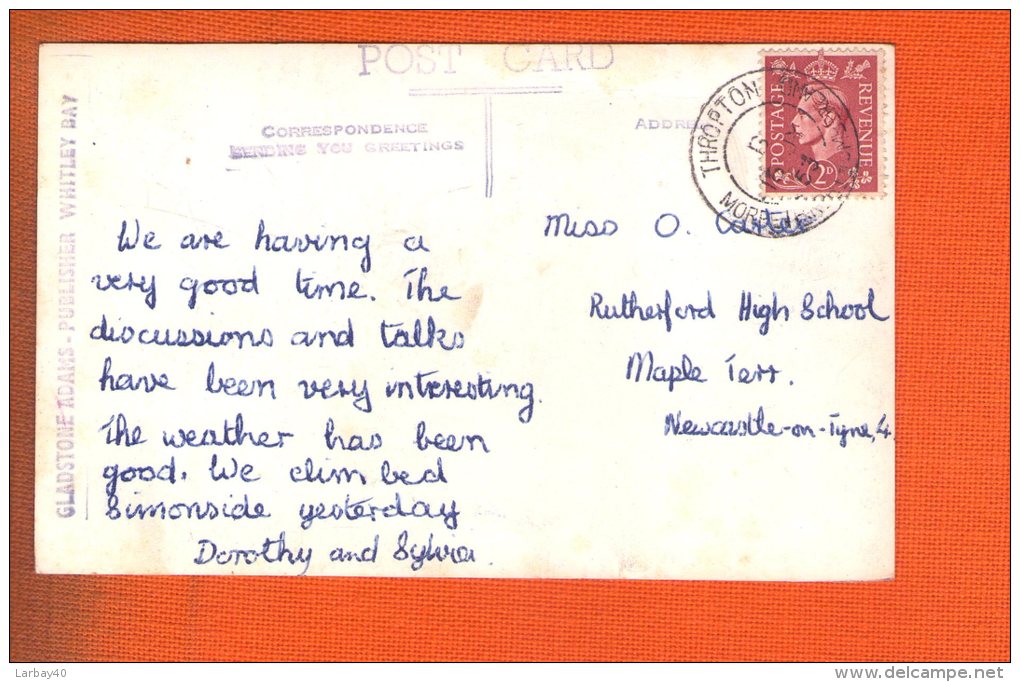 POST CARD
CORRESPONDENCE
SENDING YOU GREETINGS
ADDRE
GLADSTONE ADAMS - PUBLISHER WHITLEY BAY
POSTAGE REVENUE
2D
THROPTON
MORPETH
We are having a
very good time. The
discussions and talks
have been very interesting.
The weather has been
good. We climbed
Simonside yesterday
Dorothy and Sylvia.
Miss O.
Rutherford High School
Maple Terr.
Newcastle-on-Tyne, 4.
Larbay40
www.delcampe.net